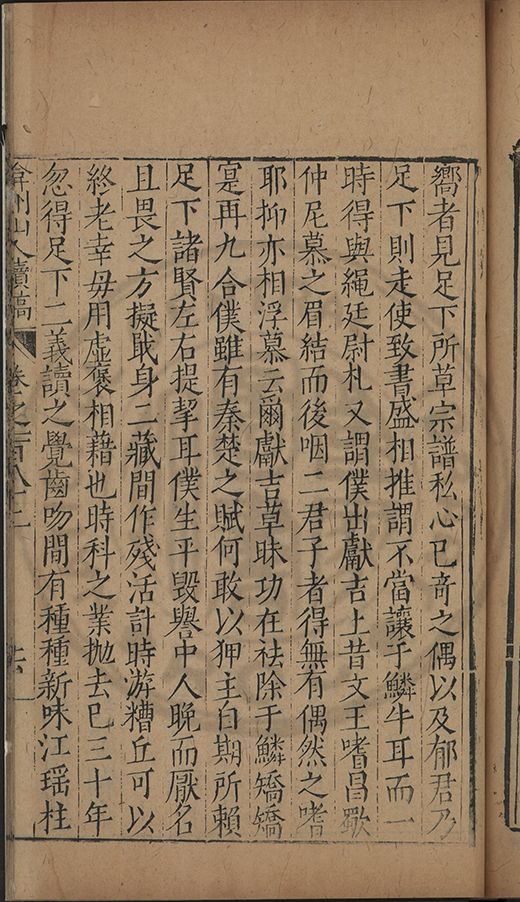 嚮者見足下所草宗譜私心已奇之偶以及郁君乃
足下則走使致書盛相推謂不當讓于鱗牛耳而一
時得與繩廷尉札又謂僕出獻吉上昔文王嗜昌歜
仲尼慕之眉結而後咽二君子者得無有偶然之嗜
耶抑亦相浮慕云爾獻吉草昧功在袪除于鱗矯矯
寔再九合僕雖有秦楚之賦何敢以狎主自期所賴
足下諸賢左右提挈耳僕生平毀譽中人晚而厭名
且畏之方擬戢身二藏間作殘活計時游糟丘可以
終老幸毋用虛褒相藉也時科之業拋去已三十年
忽得足下二義讀之覺齒吻間有種種新味江瑶柱
弇州山人續稿 卷之一百八十二